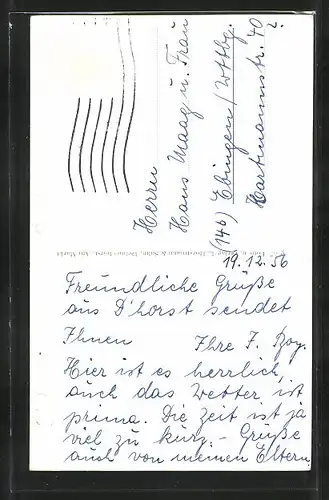 Herrn
Hans Maag u. Frau
(14b) Ebingen/Wttbg.
Hartmannstr. 40
2.
19.12.56
Freundliche Grüße
aus D'horst sendet
Ihnen Ihre F.
Hier ist es herrlich,
auch das Wetter ist
prima. Die Zeit ist ja
viel zu kurz. - Grüße
auch von meinen Eltern